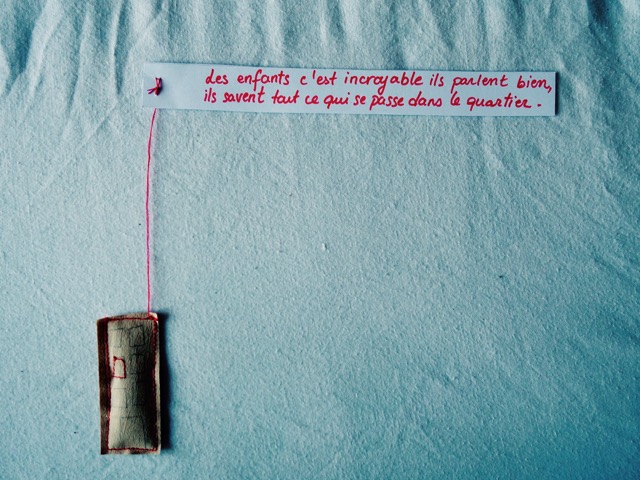 des enfants c'est incroyable ils parlent bien,
ils savent tout ce qui se passe dans le quartier.